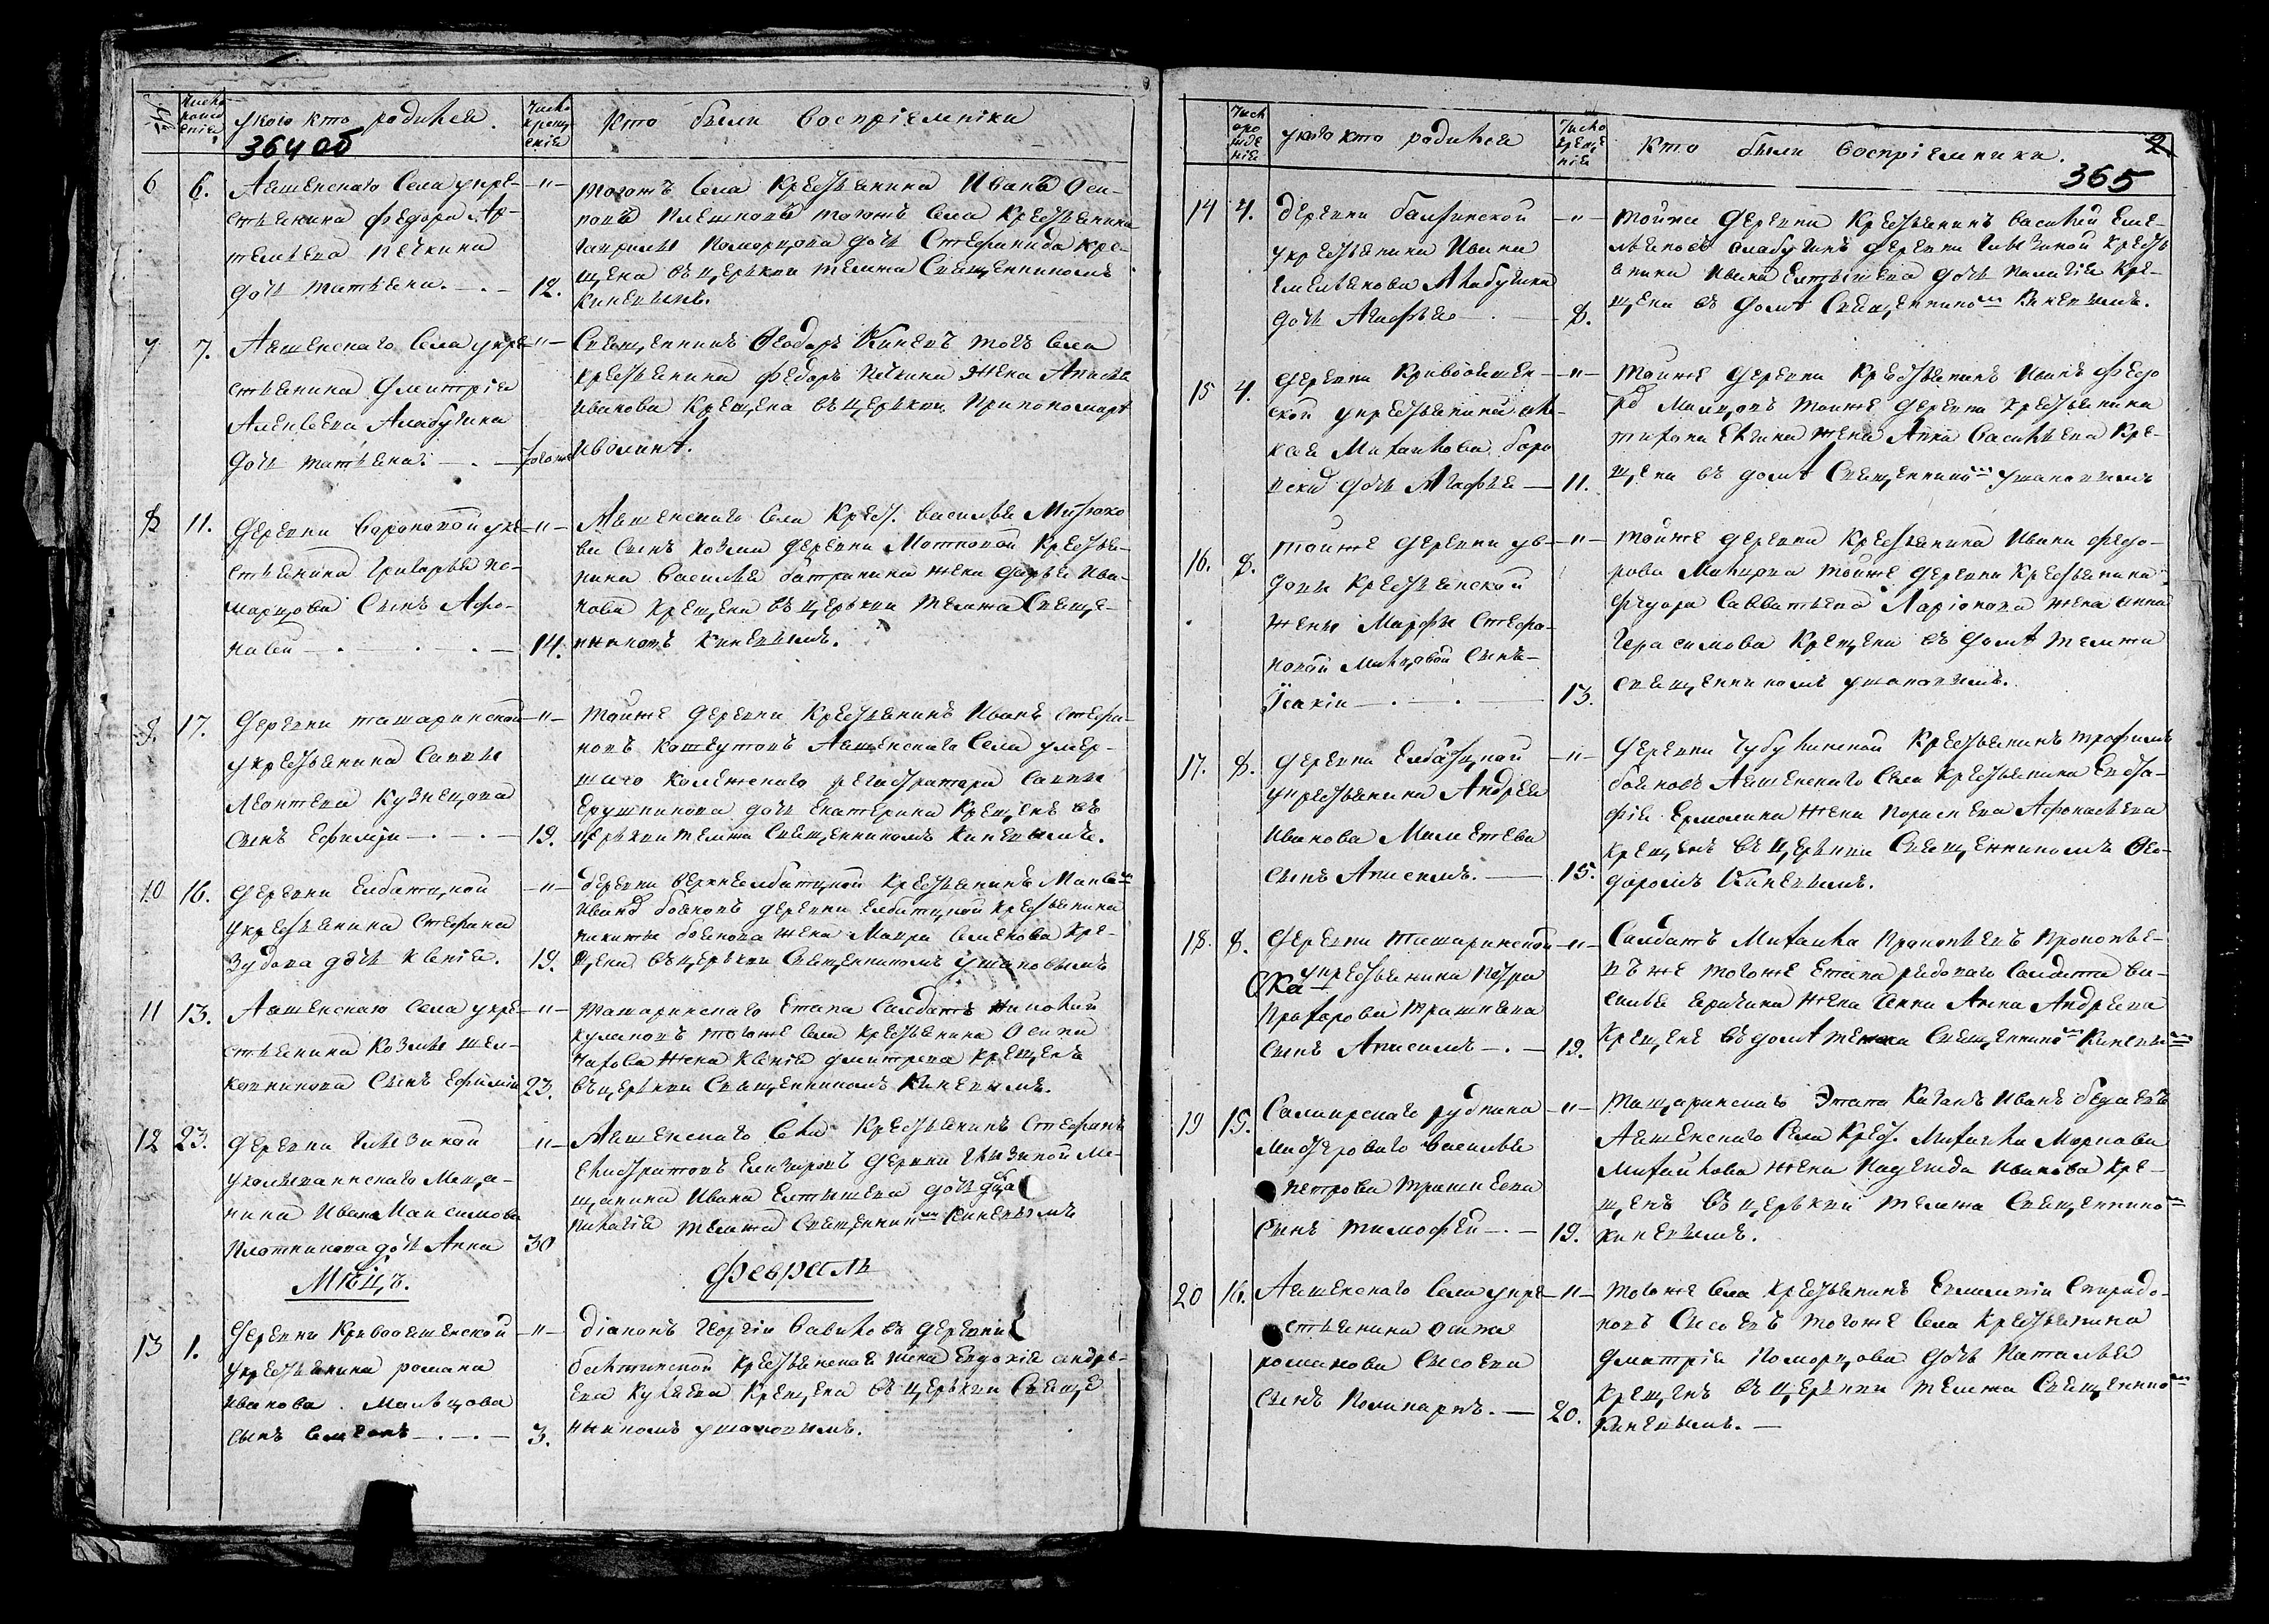 №
Число рожденія
У кого кто родился.
Число крещенія
Кто были восприемніки
364 об
6 6. Яишенскаго села у кре-
стьянина Федора Ар-
темьева Пѣкина
дочь Татьяна. 12.
тогожъ села крестьянина Иванъ Оси-
повъ тогожъ села крестьянина
Гаврилы Поморцова дочь Стефанида кре-
щена въ церкви темже священникомъ
Киневымъ.
7 7. Яишенскаго села у кре-
стьянина Дмитрія
Алексѣева Алабугина
дочь Татьяна.
Священникъ Феодоръ Киневъ тогъ села
крестьянина Федоръ Пѣкина жена Анисья
Иванова крещена въ церкви при пономарѣ
8 11. Деревни Вороновой у кре-
стьянина Григорья По-
марцова сынъ Афо-
насей 14.
Яишенскаго села крест. Василья
ва сынъ Козма деревни крестья-
нина Василья жена Дарья Ива-
нова крещенъ въ церкви темжа свяще-
нникомъ Киневымъ.
9 17. Деревни Ташаринской
у крестьянина Саввы
Леонтьева Кузнецова
сынъ Ефимій 19.
тойже деревни крестьянинъ Иванъ Стефа-
новъ Яишенскаго села умер-
шаго колежскаго регистратора Саввы
Ерушникова дочь Екатерина крещенъ въ
церкви темжа священникомъ Киневымъ.
10 16. Деревни Елбатцкой
у крестьянина Стефана
Зудова дочь Ксенія. 19.
деревни верхнеелбатцкой крестьянинъ
Иванъ Бояновъ деревни Елбатцкой крестьянина
Никиты Боянова жена Мавра Семенова кре-
щена въ церкви священникомъ Ушановымъ
11 13. Яишенскаго села у кре-
стьянина Козмы Шел-
ковникова сынъ Ефимій 23.
Ташаринскаго етапа салдатъ Николай
Кулаковъ тогоже села крестьянина Осипа
жена Ксенія Дмитрева крещенъ
въ церкви священникомъ Киневымъ.
12 23. Деревни Гилѣзиной
у колыванскаго меща-
нина Ивана Максимова
Плотникова дочь Анна 30
Яишенскаго села крестьянинъ Стефанъ
деревни Гилѣзиной ме-
щанина Ивана Елтышева дочь
темжа священникомъ Киневымъ
М҃цъ. Февраль
13 1. Деревни Кривояшенской
у крестьянина Романа
Иванова Мальцова
сынъ Семіонъ 3.
діаконъ Георгій Савиковъ деревни
Балтинской крестьянская жена Евдокія Андре-
ева крещена въ церкви свяще
нникомъ Ушановымъ.
Число рожденія
У кого кто родился
Число крещенія
Кто были восприемники.
2.
365
14 4. деревни Балтинской
у крестьянина Ивана
Емельянова Алабугина
дочь Агафья 8.
тойже деревни крестьянинъ Василей Еме-
льяновъ Алабугинъ деревни Гилѣзиной крестья
нина Ивана Елтышева дочь Палагія кре-
щена въ домѣ священникомъ Киневымъ.
15 4. Деревни Кривояшен-
ской у крестьянина Але-
ксея Михайлова
дочь Агафья 11.
тойже деревни крестьянинъ Иванъ Федо
тойже деревни крестьянина
жена Анна Васильева кре-
щена въ домѣ священникомъ Ушановымъ
16. 8. тойже деревни у в-
довы крестьянской
жены Марфы Стефа-
новой Мальцовой сынъ
Ісакій 13.
тойже деревни крестьянина Ивана Федо-
рова Мальцова тойже деревни крестьянина
Федора Савватѣева Ларіонова жена Анна
Герасимова крещены въ домѣ темжа
священникомъ Ушановымъ.
17. 8. деревни Елбатцкой
у крестьянина Андрея
Иванова
сынъ Анисимъ. 15.
деревни крестьянинъ Трофимъ
Бояновъ Яишенскаго села крестьянина Евста-
фія Ермолина жена Афонасьева
крещенъ въ церкви священникомъ Фео-
доромъ Киневымъ.
18. 8. Деревни Ташаринской
у крестьянина Петра
Прохорова Тришкина
сынъ Анисимъ 19.
Салдатъ Михайла Прокопьевъ Прокопье-
въ же тогоже етапа рядоваго салдата Ва-
силья жена Анна Андреева
крещенъ въ домѣ темжа священникомъ Киневымъ
19 15. Салаирскаго рудника
мастероваго Василья
Петрова Тришкина
сынъ Тимофей 19.
Ташаринскаго Этапа Иванъ
Яишенскаго села крест. Михайла Маркова
Михайлова жена Надежда Иванова кре-
щенъ въ церкви темжа священникомъ
Киневымъ.
20 16. Яишенскаго села у кре-
стьянина Осипа
Романова Сысоева
сынъ Поликарпъ. 20.
тогоже села крестьянинъ Евлампій Спиридо-
новъ Сысоевъ тогоже села крестьянина
Дмитрія Поморцова дочь Наталья
крещенъ въ церкви темжа священникомъ
Киневымъ.